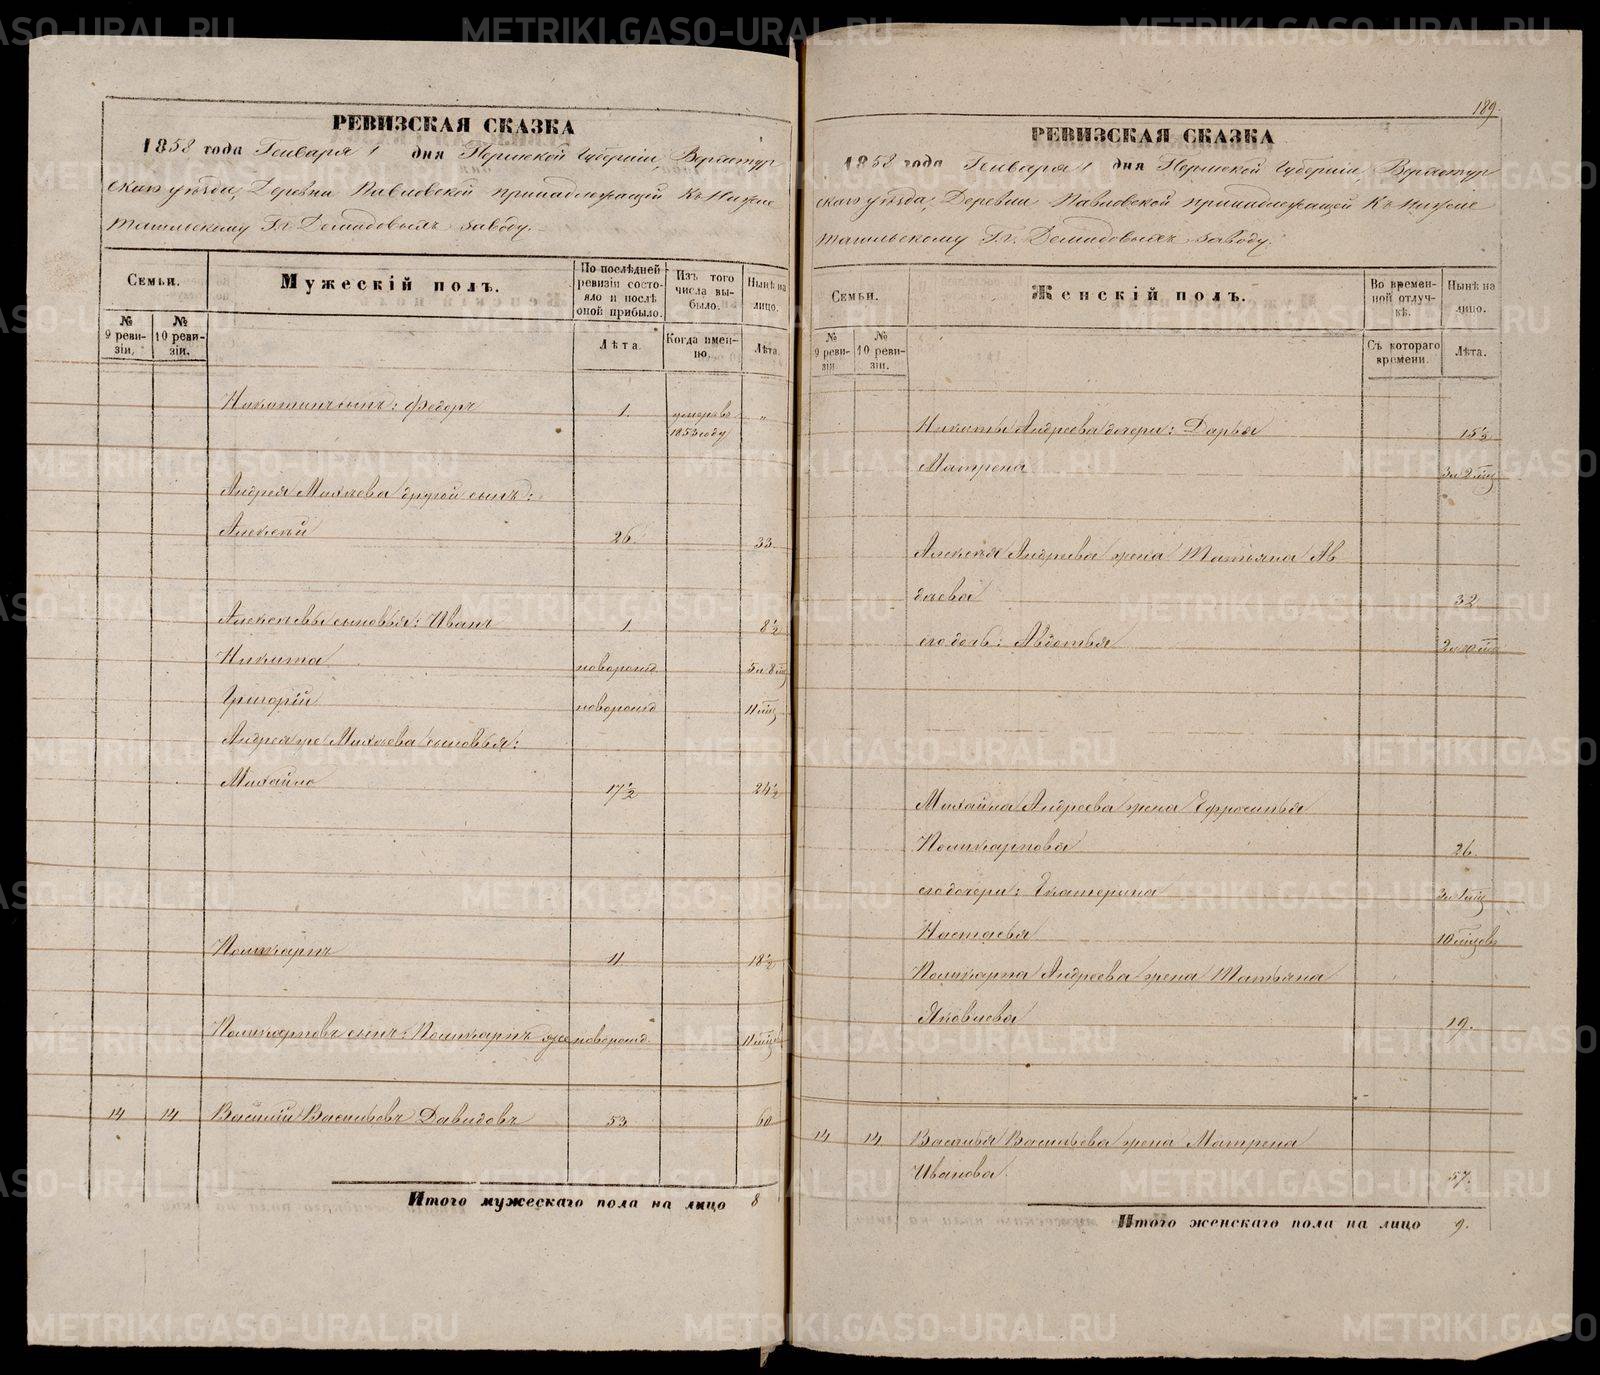 РЕВИЗСКАЯ СКАЗКА
1858 года Генваря 1 дня Пермской Губерніи, Верхотур
скаго уѣзда, Деревни Павловской принадлежащей Къ Нижне
тагильскому Гг. Демидовыхъ заводу.
Семьи.
№ 9 ревизіи.
№ 10 ревизіи.
Мужескій полъ.
По послѣдней ревизіи состояло и послѣ оной прибыло.
Лѣта.
Изъ того числа выбыло.
Когда именно.
Нынѣ на лицо.
Лѣта.
Никитинъ сынъ: Федоръ 1. умеръ въ 1853 году „
Андрея Михаева другой сынъ:
Алексѣй 26. 33.
Алексѣевы сыновья: Иванъ 1. 8½
Никита новорожд. 5 л 8 мѣц
Григорій новорожд. 11 мѣц
Андрея же Михаева сыновья:
Михайло 17½ 24½
Поликарпъ 11 18½
Поликарповъ сынъ: Поликарпъ же новорожд. 11 мѣц
14 14 Василій Васильевъ Давидовъ 53 60
Итого мужескаго пола на лицо 8
189.
РЕВИЗСКАЯ СКАЗКА
1858 года Генваря 1 дня Пермской Губерніи, Верхотур
скаго уѣзда, Деревни Павловской принадлежащей Къ Нижне
тагильскому Гг. Демидовыхъ заводу.
Семьи.
№ 9 ревизіи.
№ 10 ревизіи.
Женскій полъ.
Во временной отлучкѣ.
Съ котораго времени.
Нынѣ на лицо.
Лѣта.
Никиты Андреева дочери: Дарья 15½
Матрена 3 л 2 мѣц
Алексѣя Андреева жена Татьяна Ав
дѣева 32
его дочь: Авдотья
Михайла Андреева жена Ефросинья
Поликарпова 26.
его дочери: Екатерина 3 л 1 мѣц
Настасья 10 мѣцовъ
Поликарпа Андреева жена Татьяна
Яковлева 19.
14 14 Василья Васильева жена Матрена
Иванова. 57.
Итого женскаго пола на лицо 9.
METRIKI.GASO-URAL.RU